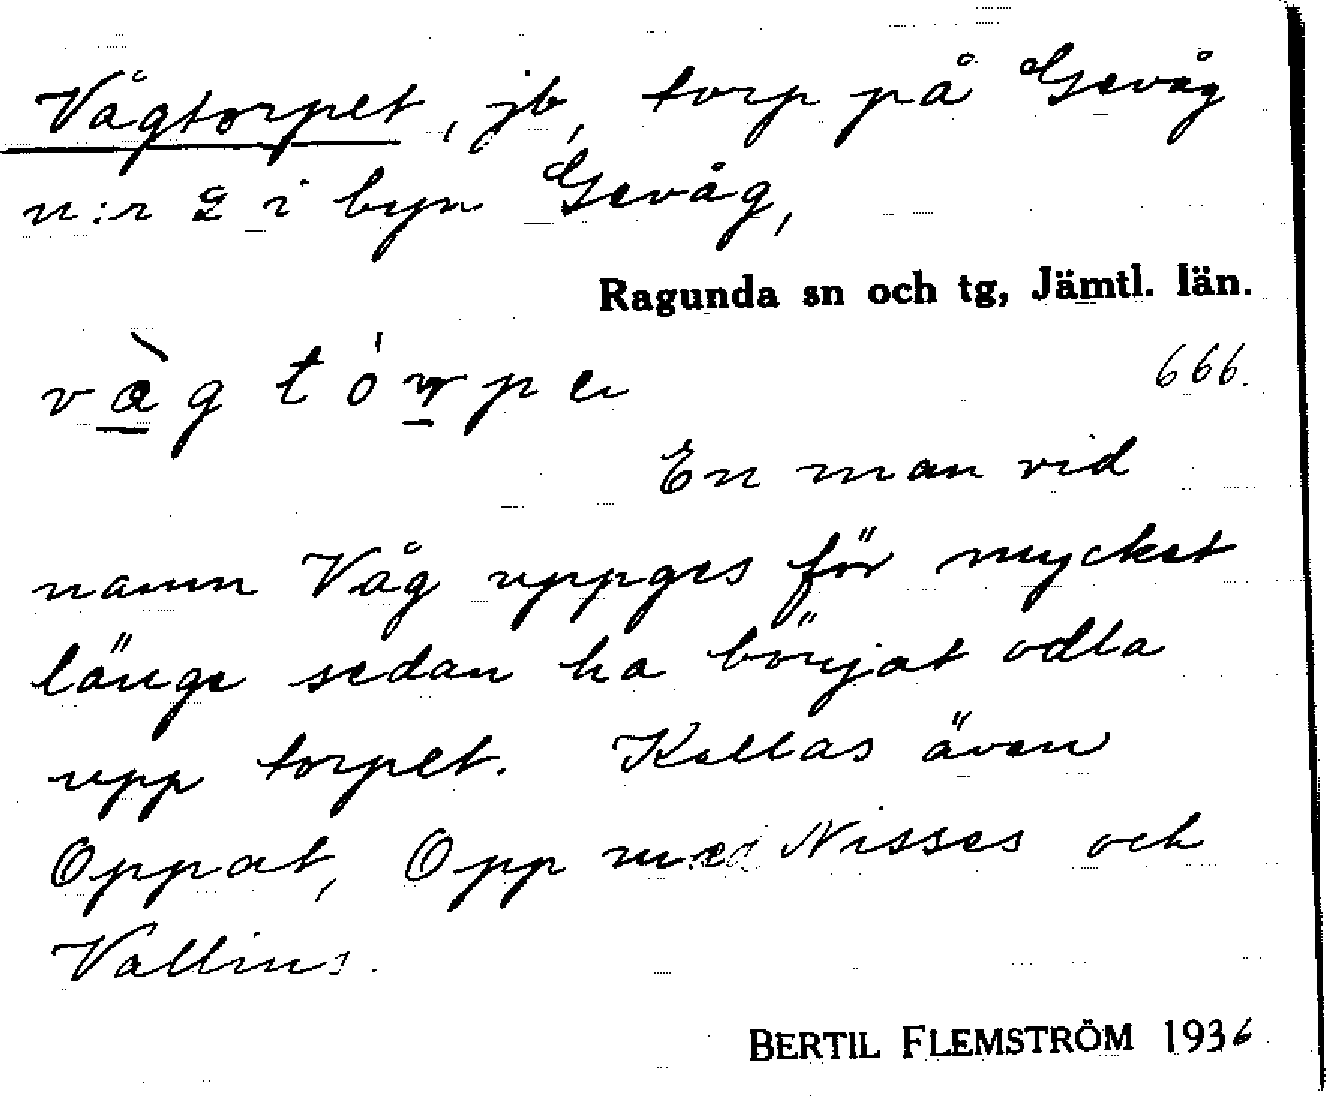 Vågtorpet, jb, torp på Gevåg
n:r 2 i byn Gevåg,
Ragunda sn och tg, Jämtl. län.
666.
En man vid
namn Våg uppges för mycket
länge sedan ha börjat odla
upp torpet. Kallas även
Oppat, Opp med Nisses och
Vallins.
BERTIL FLEMSTRÖM 1936